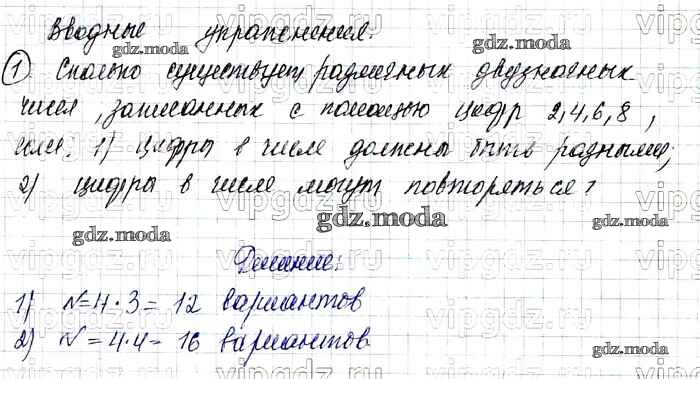 Вводные упражнения.
① Сколько существует различных двузначных
чисел, записанных с помощью цифр 2,4,6,8,
если: 1) цифры в числе должны быть разными;
2) цифры в числе могут повторяться?
Решение:
1) N=4·3= 12 вариантов
2) N=4·4= 16 вариантов
gdz.moda
gdz.moda
gdz.moda
gdz.moda
gdz.moda
gdz.moda
gdz.moda
vipgdz.ru